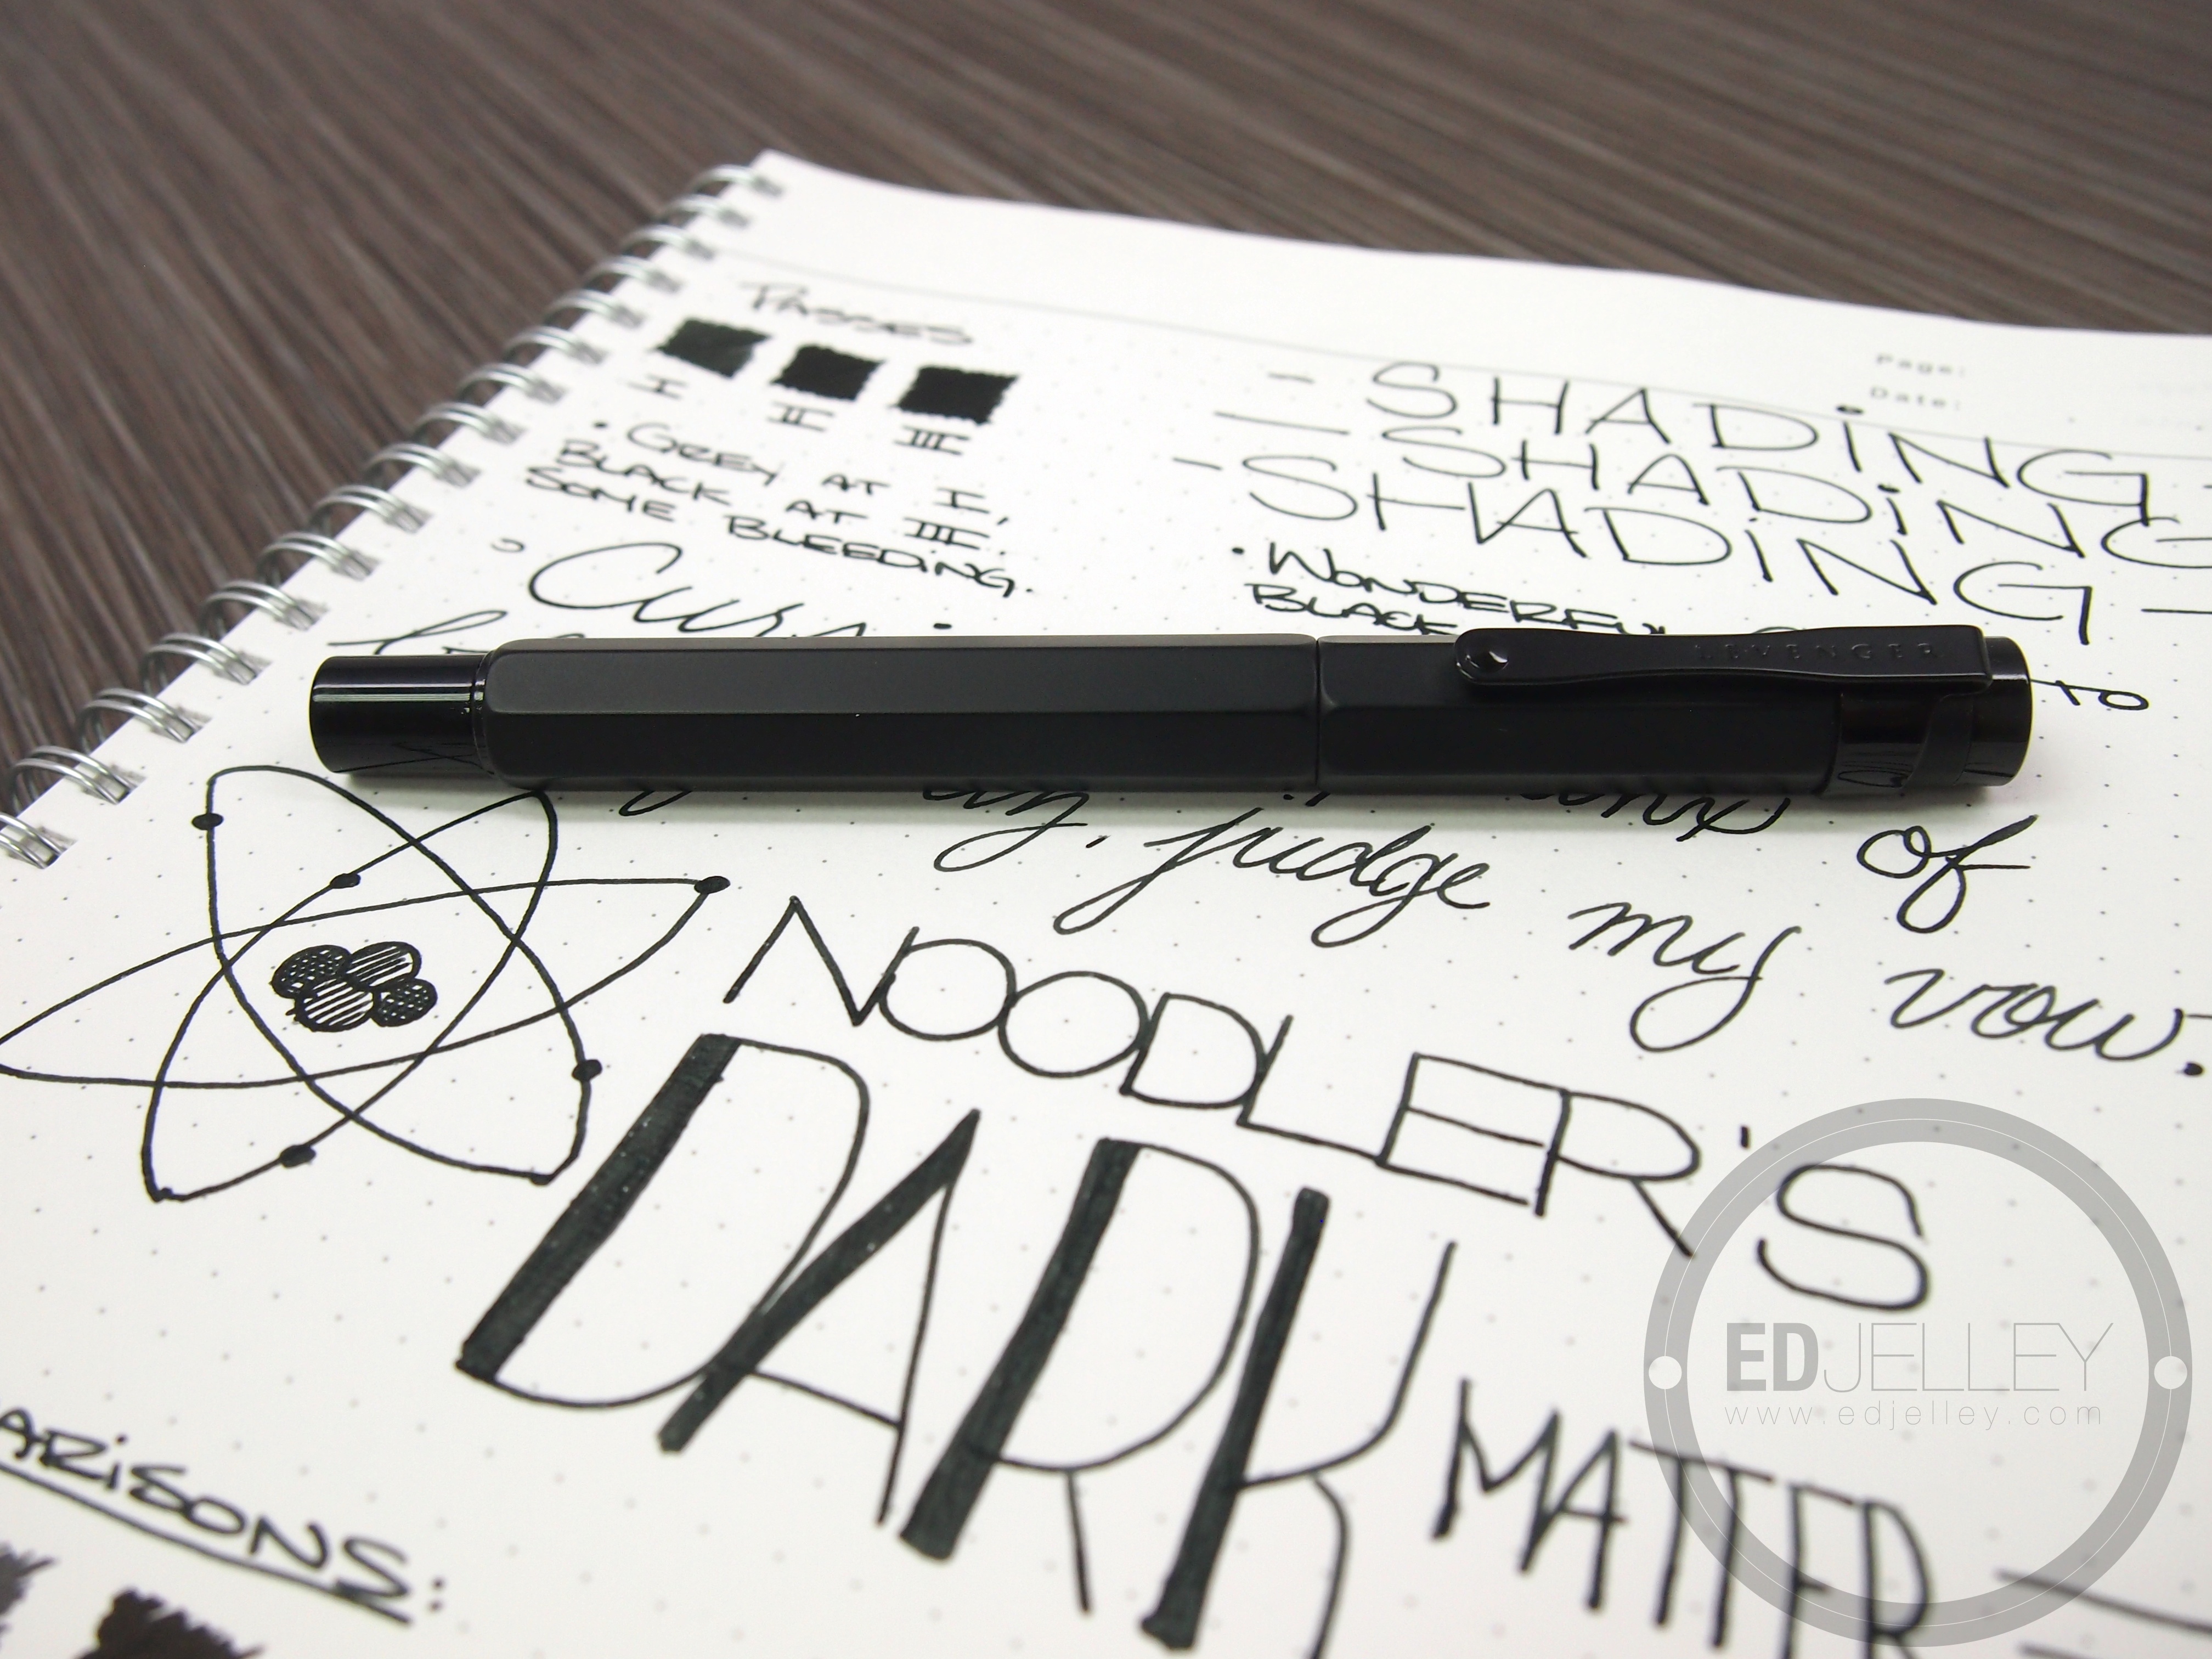 Page:
Date:
PASSES
I II III
• GREY AT I,
BLACK AT III.
SOME BLEEDING.
- SHADING -
— SHADING
- SHADING —
• WONDERFUL
BLACK
TO
LEVENGER
of
judge my vow.
NOODLER'S
DARK
MATTER
ARISONS:
EDJELLEY
www.edjelley.com